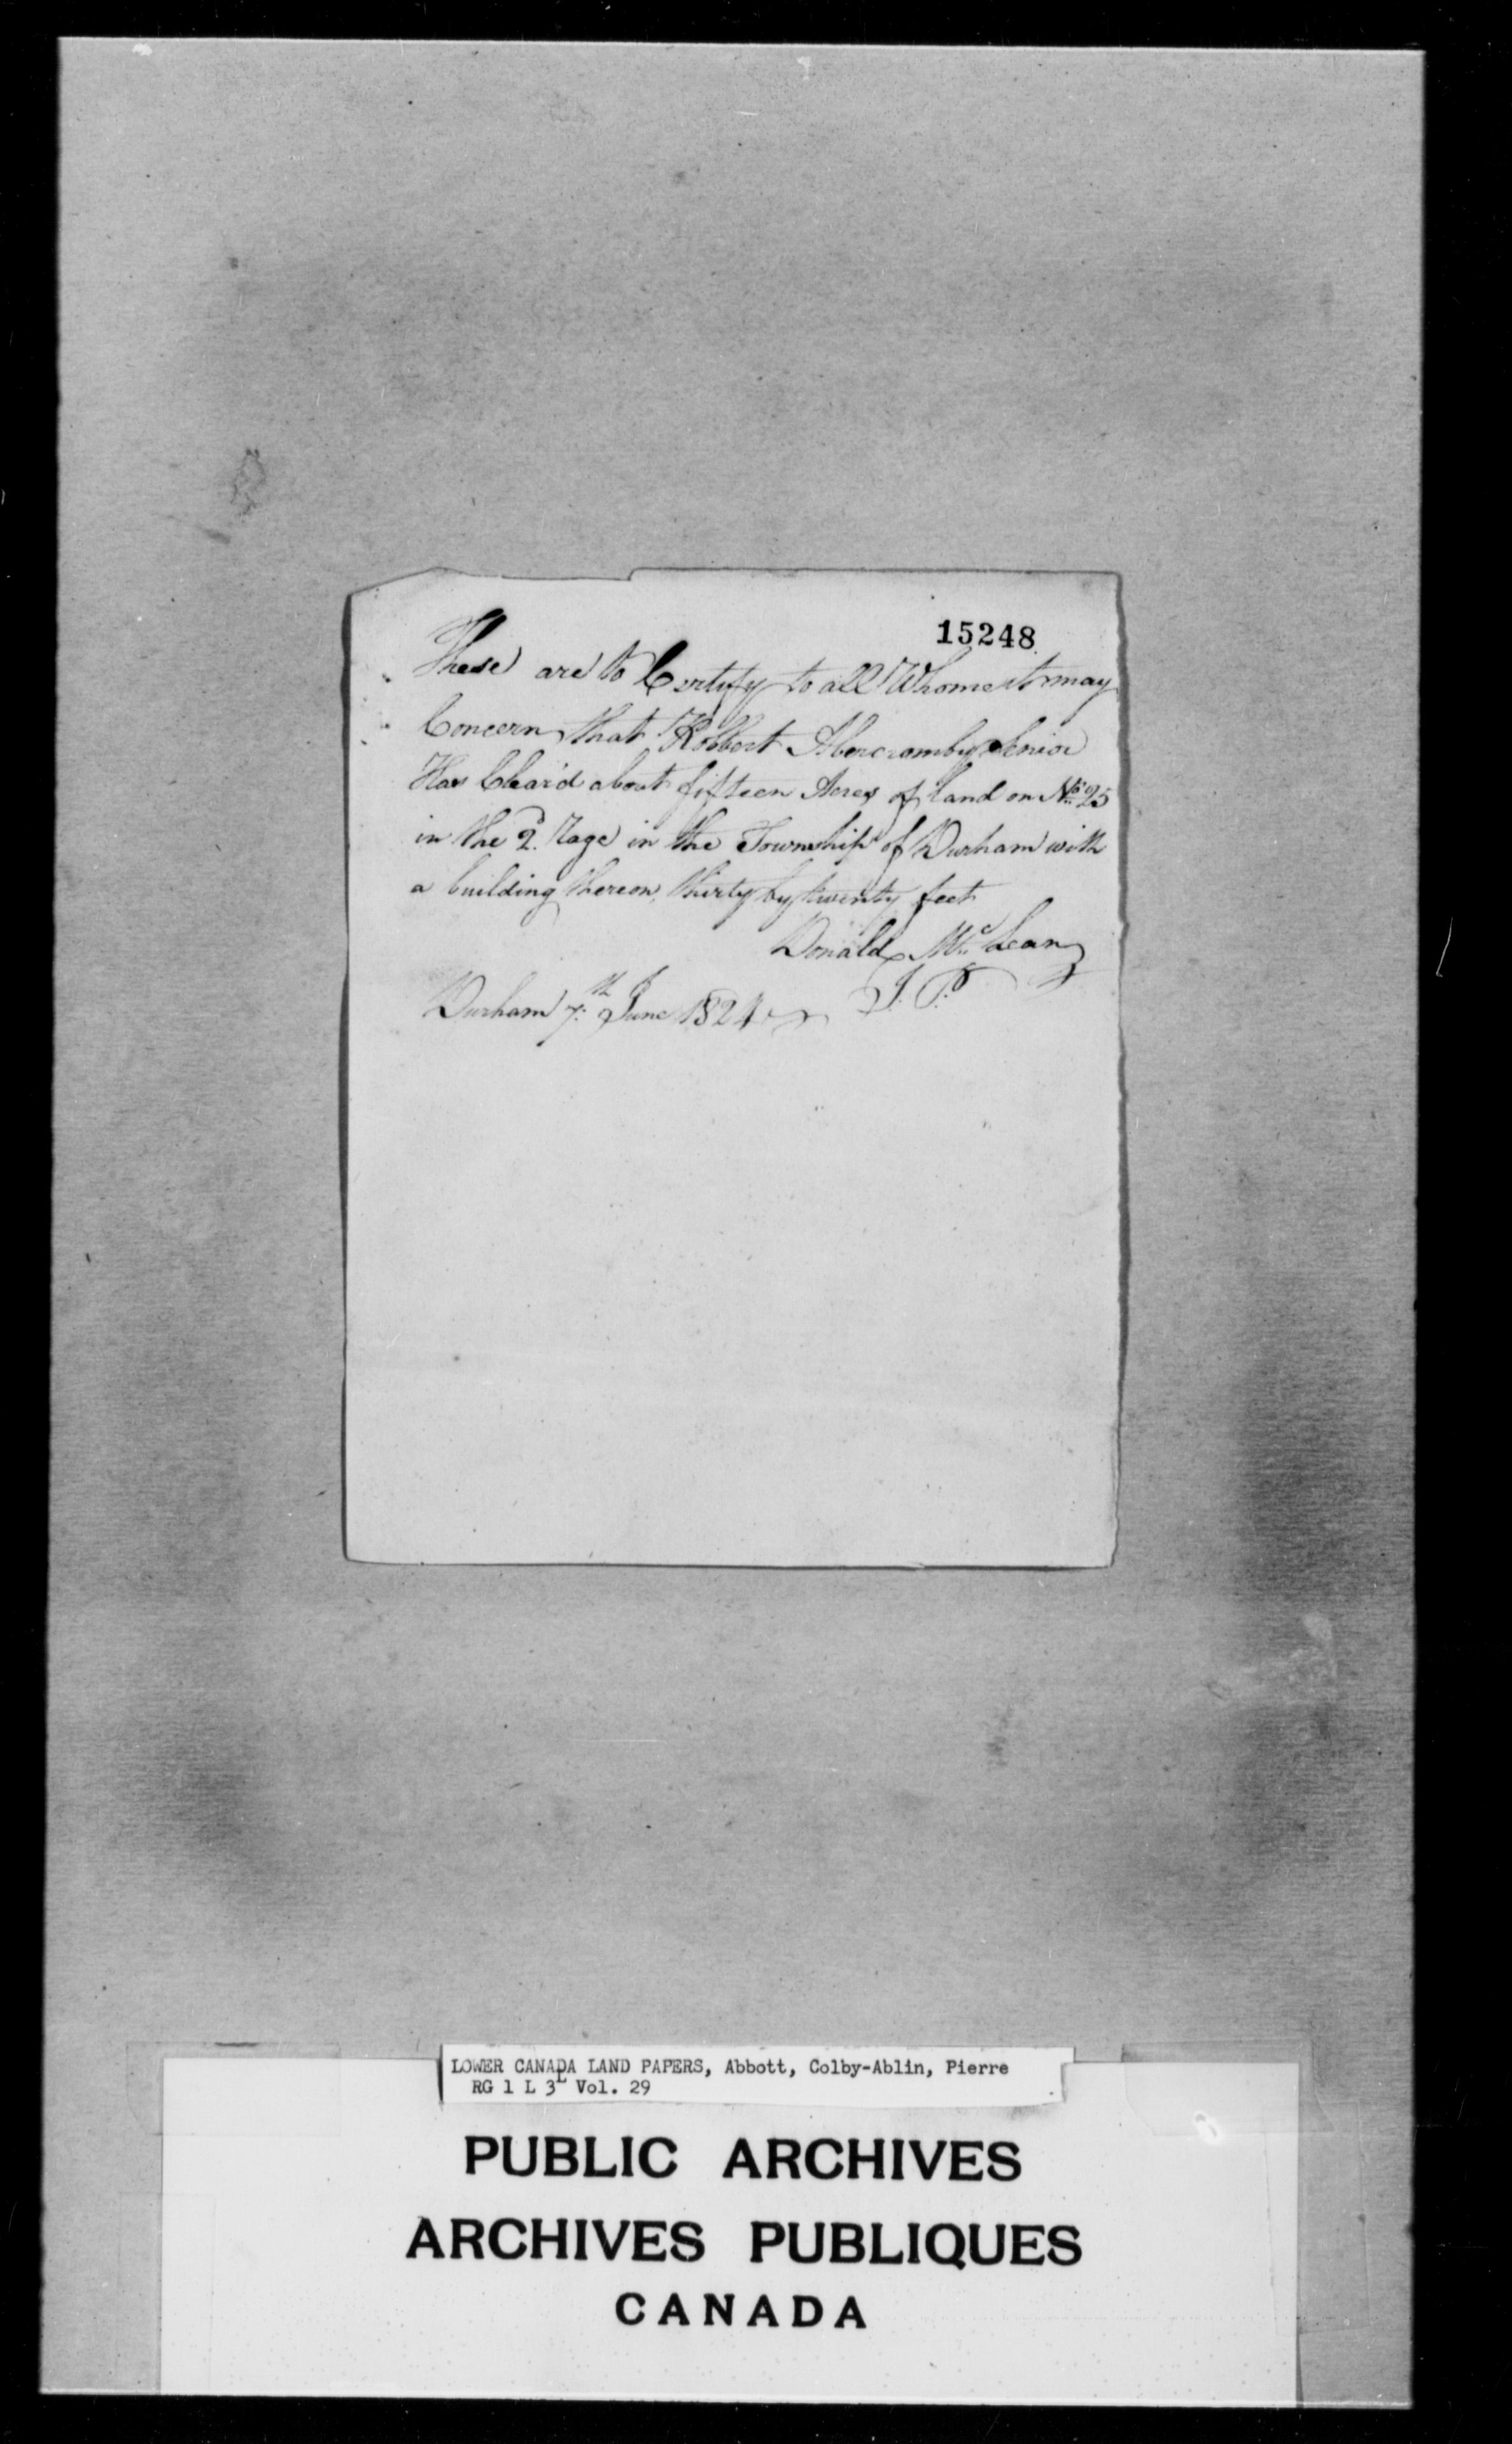 15248
These are to Certify to all Whome it may
Concern that Robbert Abercromby Senior
Has Clear'd about fifteen Acres of land on No. 25
in the 2d. Rage in the Township of Durham with
a building thereon, thirty by twenty feet
Donald Mc Lean
J. P.
Durham 7th June 1824
LOWER CANADA LAND PAPERS, Abbott, Colby-Ablin, Pierre
RG 1 L 3L Vol. 29
PUBLIC ARCHIVES
ARCHIVES PUBLIQUES
CANADA